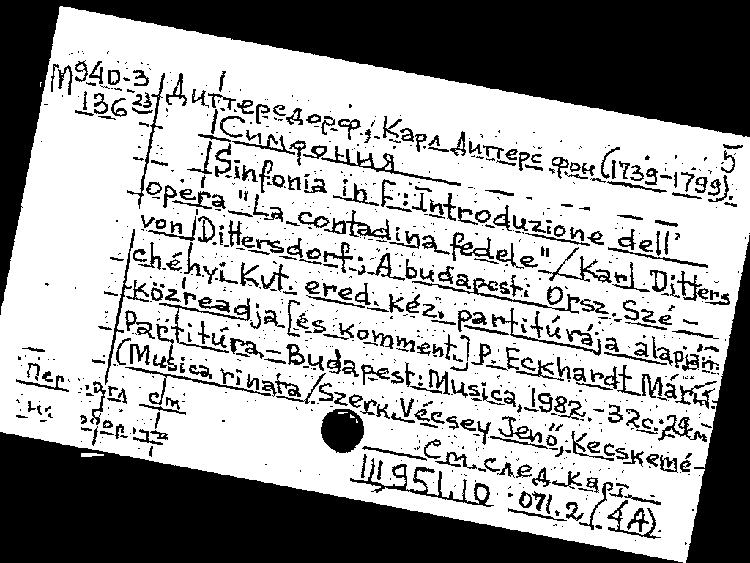 5
М940-3
136 23
Диттерсдорф, Карл Диттерс фон (1739-1799)
Симфония
Sinfonia in F: Introduzione dell'
opera "La contadina fedele" / Karl Ditters
von Dittersdorf; A budapesti Orsz. Szé-
chényi Kvt. ered. kéz. partitúrája alapján
közreadja [és komment.] P. Eckhardt Mária.
Partitúra.-Budapest: Musica, 1982.-32c.; 29cm
(Musica rinata / Szerk. Vécsey Jenő, Kecskemé-
См. след. карт.
Пер. загл см
на обор.
III 951.10 071.2 (4А)